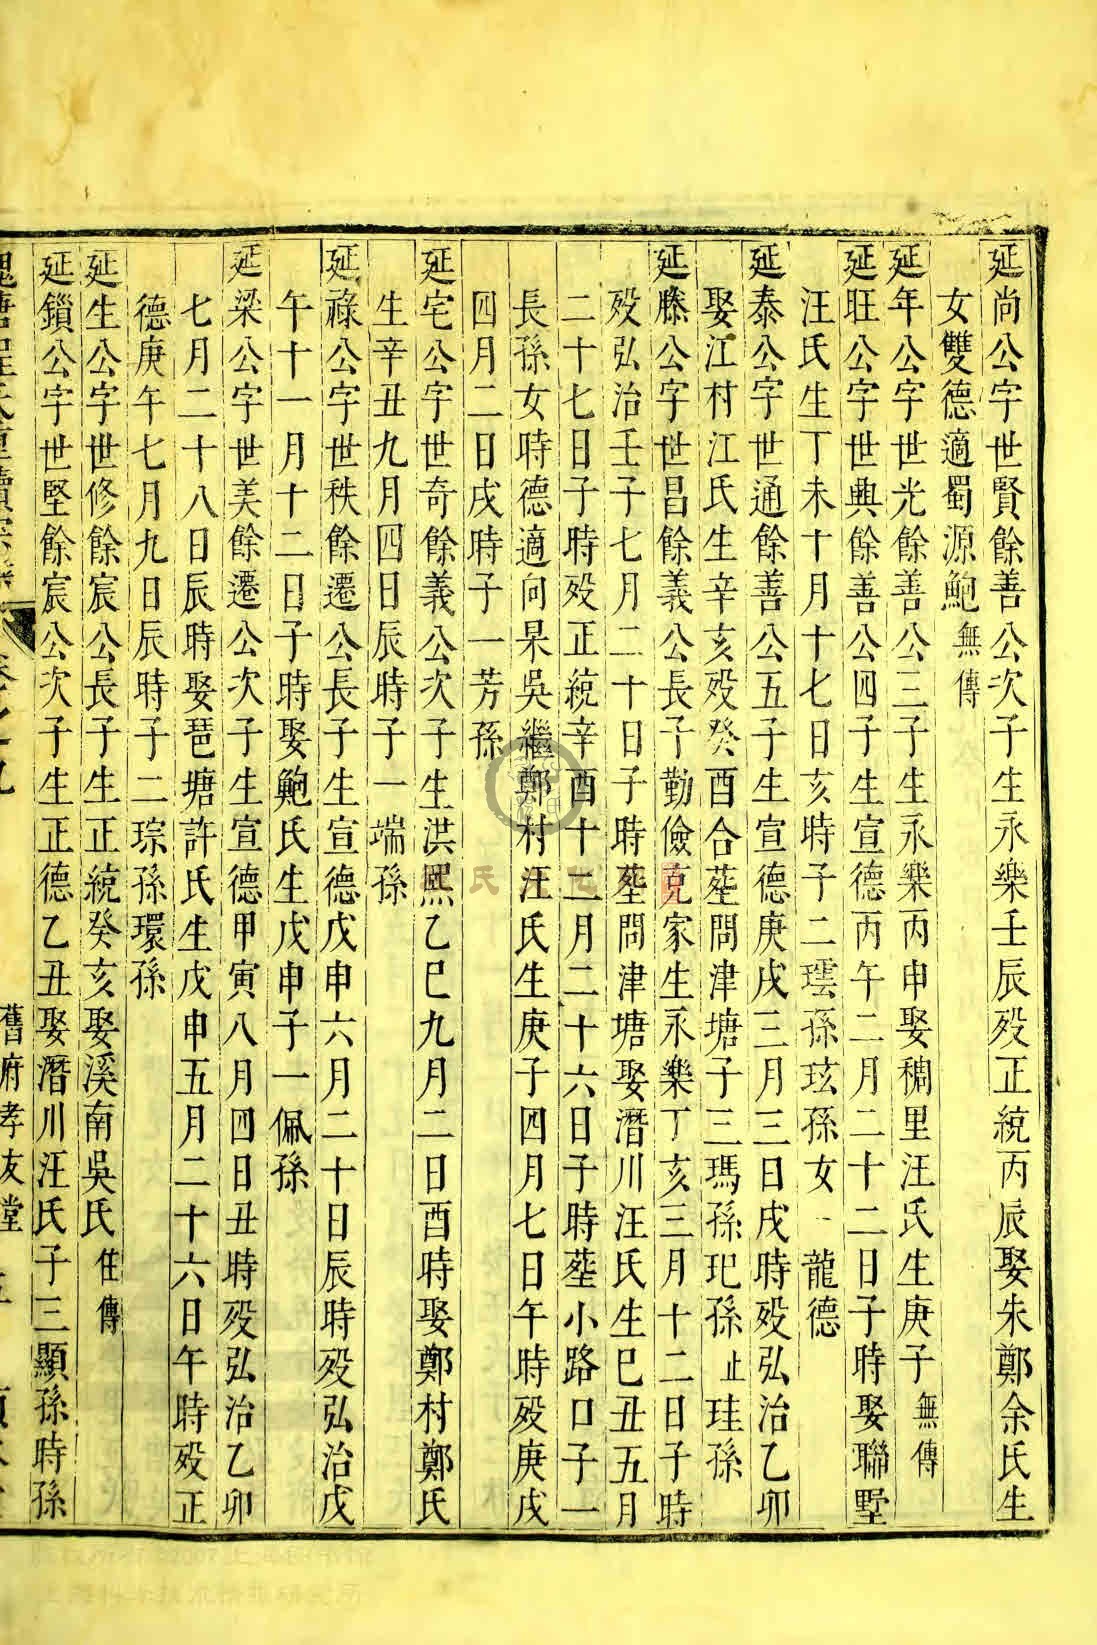 延尚公字世賢餘善公次子生永樂壬辰歿正統丙辰娶朱鄭余氏生
女雙德適蜀源鮑無傳
延年公字世光餘善公三子生永樂丙申娶稠里汪氏生庚子無傳
延旺公字世典餘善公四子生宣德丙午二月二十二日子時娶聯墅
汪氏生丁未十月十七日亥時子二璴孫玹孫女一龍德
延泰公字世通餘善公五子生宣德庚戌三月三日戌時歿弘治乙卯
娶江村江氏生辛亥歿癸酉合塟問津塘子三瑪孫玘孫止珪孫
延滕公字世昌餘義公長子勤儉克家生永樂丁亥三月十二日子時
歿弘治壬子七月二十日子時塟問津塘娶潛川汪氏生己丑五月
二十七日子時歿正統辛酉十二月二十六日子時塟小路口子一
長孫女時德適向杲吳繼鄭村汪氏生庚子四月七日午時歿庚戌
四月二日戌時子一芳孫
延宅公字世奇餘義公次子生洪熙乙巳九月二日酉時娶鄭村鄭氏
生辛丑九月四日辰時子一端孫
延祿公字世秩餘遷公長子生宣德戊申六月二十日辰時歿弘治戊
午十一月十二日子時娶鮑氏生戊申子一佩孫
延梁公字世美餘遷公次子生宣德甲寅八月四日丑時歿弘治乙卯
七月二十八日辰時娶琶塘許氏生戊申五月二十六日午時歿正
德庚午七月九日辰時子二琮孫環孫
延生公字世修餘宸公長子生正統癸亥娶溪南吳氏住傳
延鎖公字世堅餘宸公次子生正德乙丑娶潛川汪氏子三顯孫時孫
舊府孝友堂